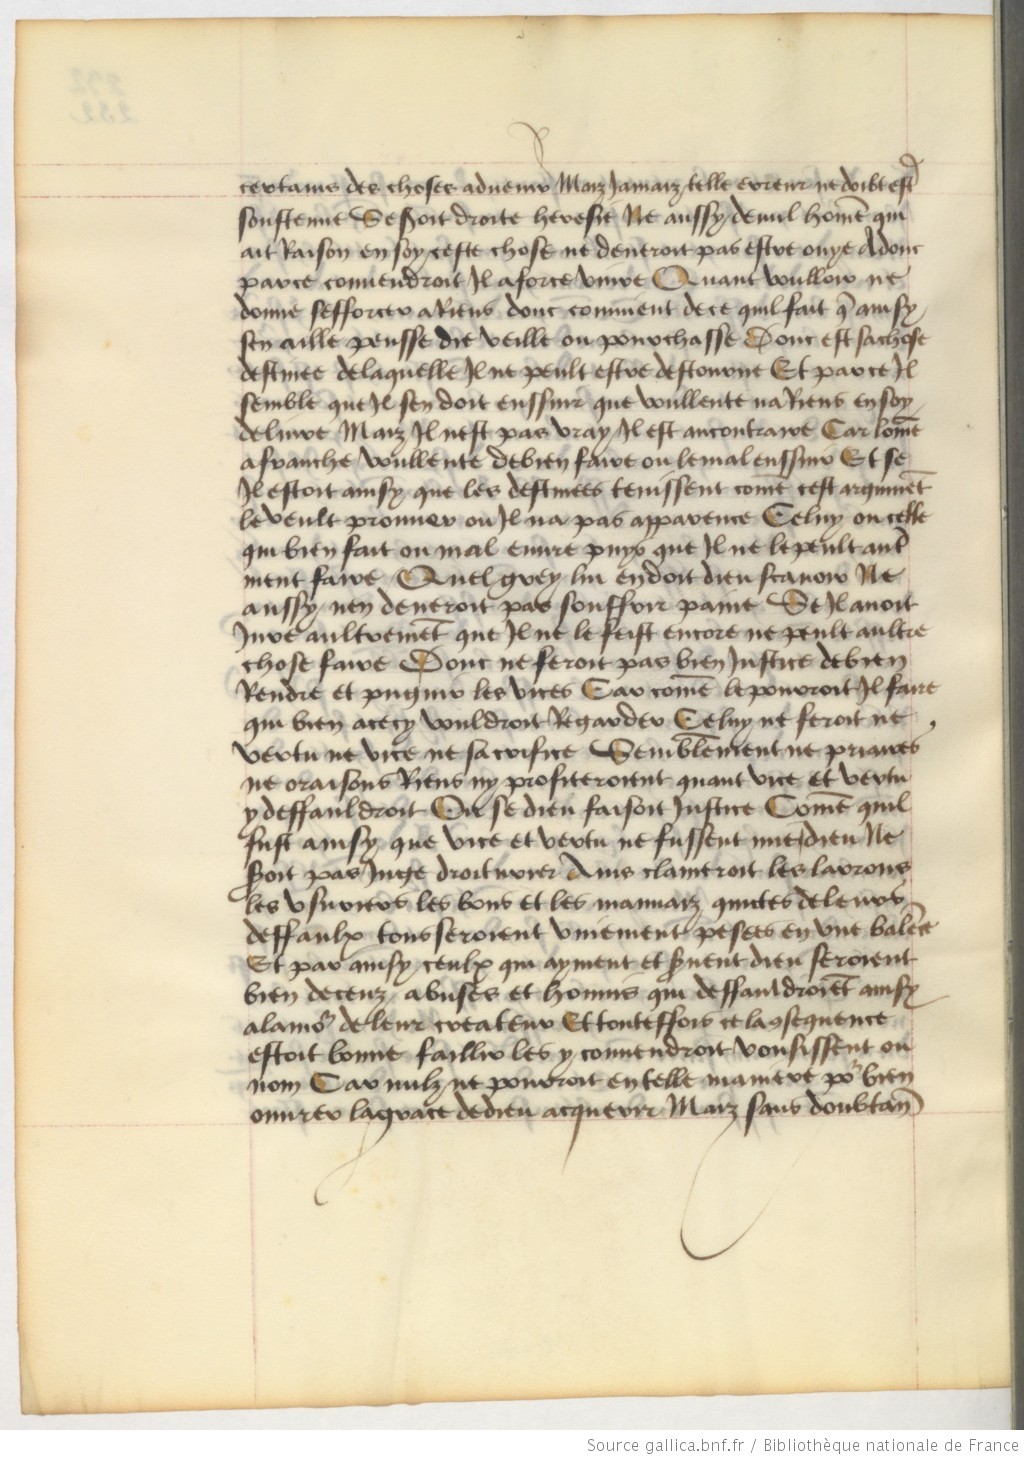 certains des choses advenir Maiz Jamaiz telle erreur ne doibt estr̃
soustenue Se seroit droite heresie Ne aussy de nul hom̃e qui
ait Raison en soy ceste chose ne deveroit pas estre ouye Adonc
par ce convendroit Il a force vivre Quant voulloir ne
donne sefforcer a Riens donc comment de ce quil fait q̃ ainsy
sen aille pensse die veille ou pourchasse Donc est sa chose
destinee de laquelle Il ne peult estre destourne Et par ce Il
semble que Il sen doit enssuir que voullente na Riens en soy
de livre Maiz Il nest pas vray Il est au contraire Car lom̃e
a franche voullente de bien faire ou le mal enssuir Et se
Il estoit ainsy que les destinees tenissent com̃e cest argumẽt
le veult prouver ou Il na pas apparence Celuy ou celle
qui bien fait ou mal euvre puys que Il ne le peult autr̃
ment faire Quel grey lui en doit dieu scavoir Ne
aussy nen deveroit pas souffrir paine Se Il avoit
Jure aultremẽt que Il ne le feist encore ne peult aultre
chose faire Donc ne feroit pas bien Justice de bien
Rendre et pugnir les vices Car com̃e le pourroit Il faire
qui bien a cecy vouldroit Regarder Celuy ne feroit ne
vertu ne vice ne sacrifice Semblẽment ne priaires
ne oraisons Riens ny profiteroient quant vice et vertu
y deffauldroit Ou se dieu faisoit Justice Com̃e quil
fust ainsy que vice et vertu ne fussent mie dieu Ne
seroit pas Juge droiturier Ains clameroit les larrons
les usuriers les bons et les mauvaiz quictes de leurs
deffaulx tous seroient uniement peses en une balẽce
Et par ainsy ceulx qui ayment et s̃vent dieu seroient
bien deceuz abuses et honnis qui deffauldroiẽt ainsy
a lamor de leur createur Et touteffois ce la 9sequence
estoit bonne faillir les y convendroit voulsissent ou
nom Car nulz ne pourroit en telle maniere por bien
ouvrer la grace de dieu acquerir Maiz sans doubtan̄
Source gallica.bnf.fr / Bibliothèque nationale de France